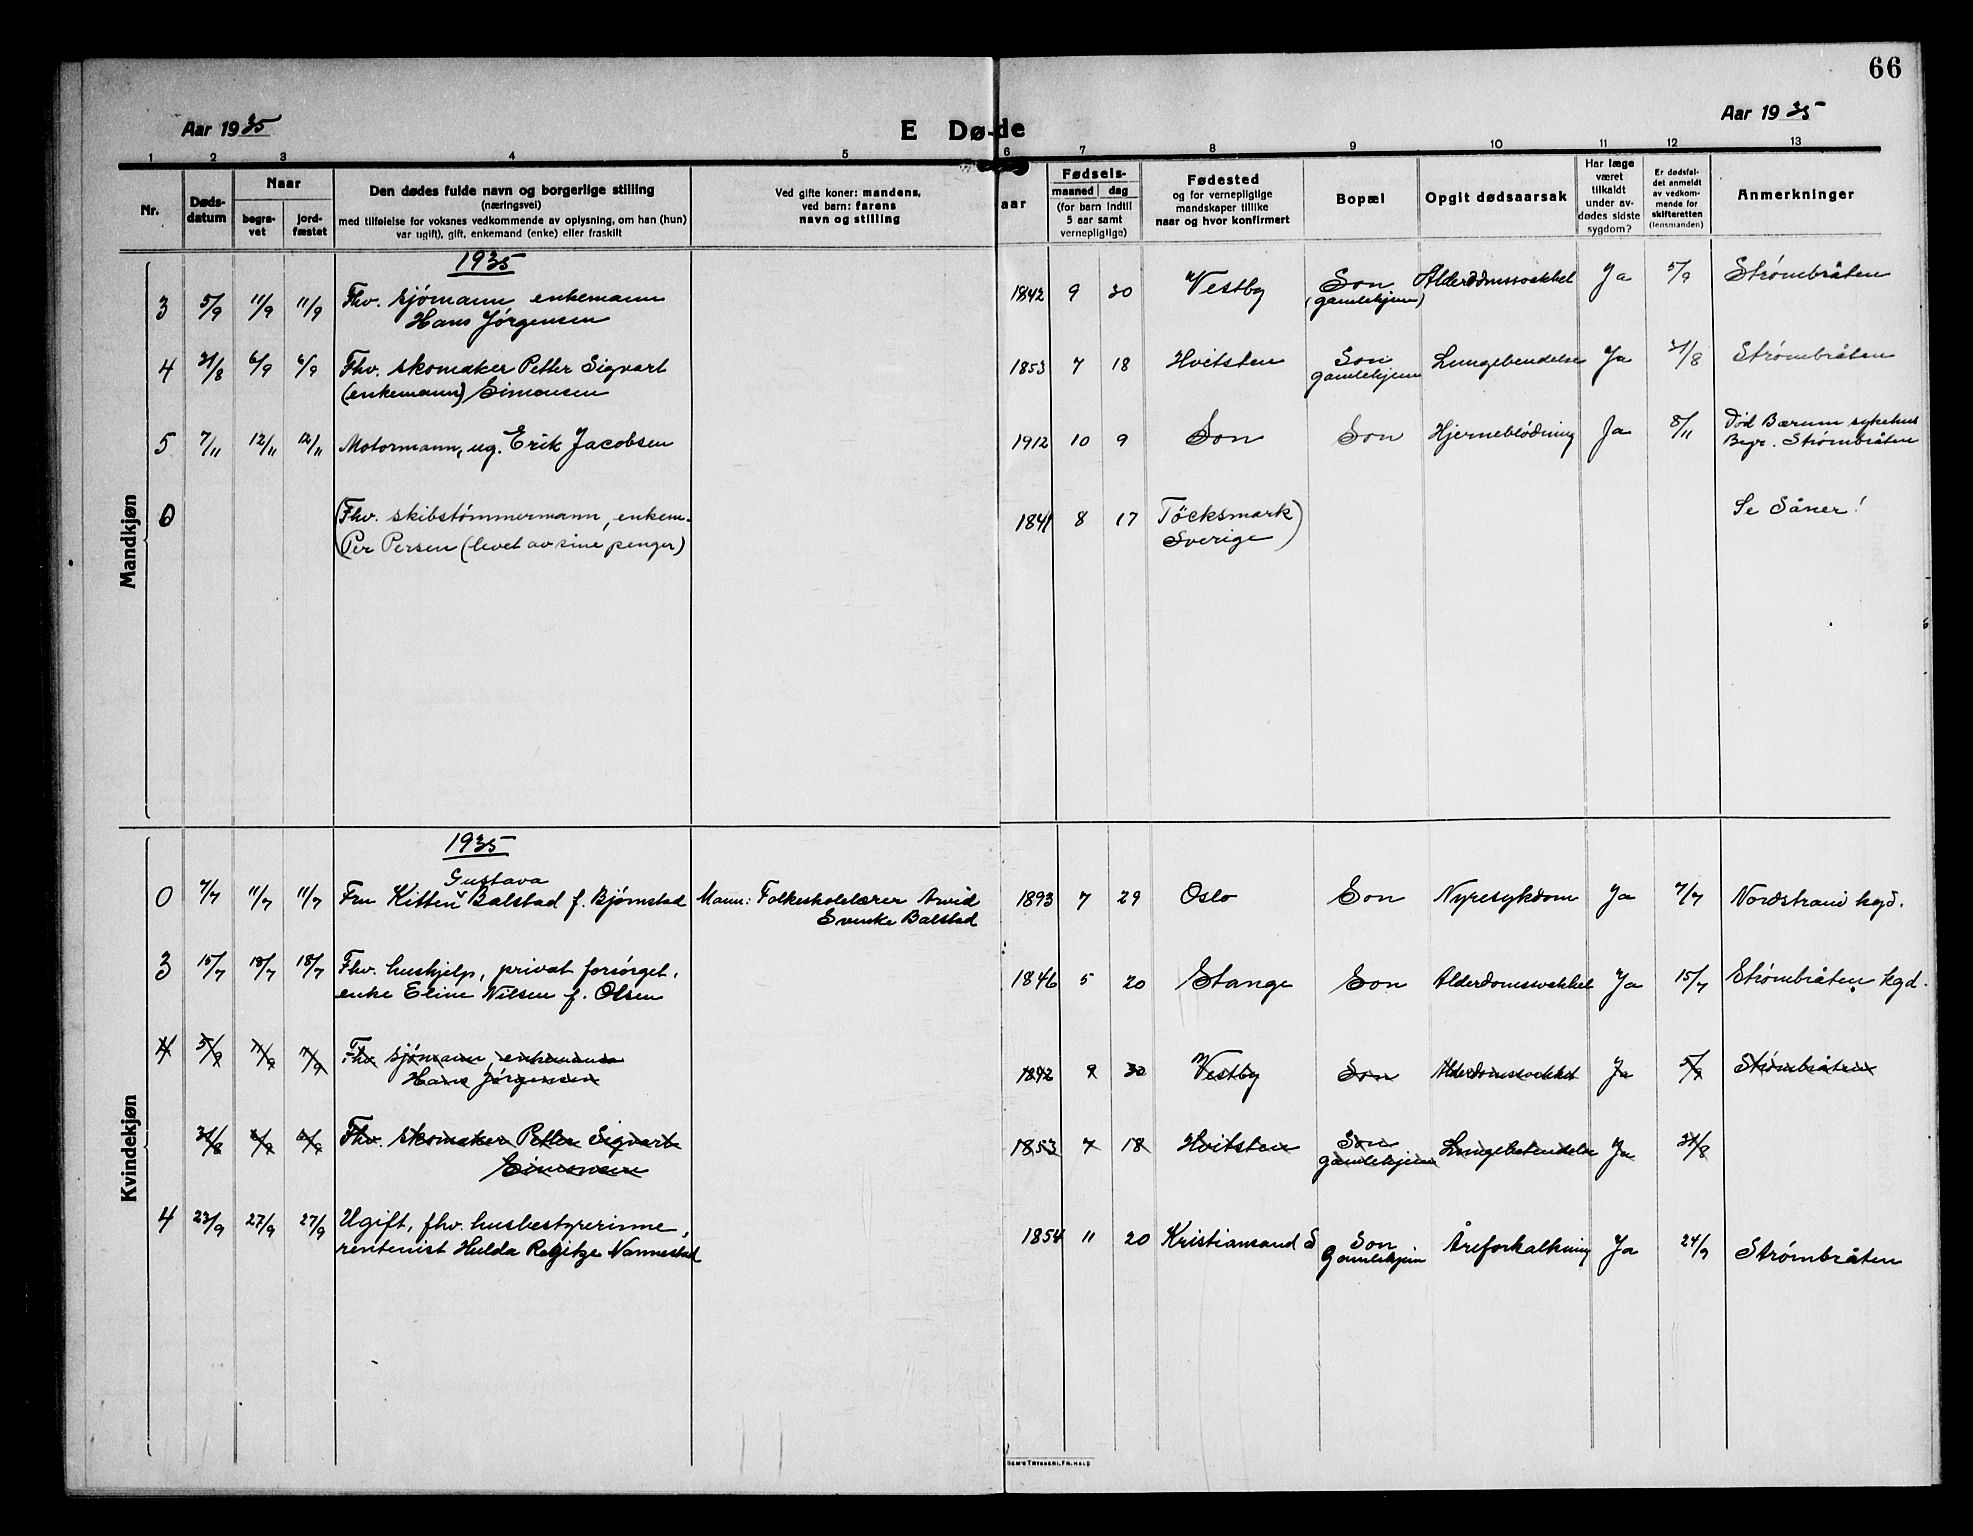 66
Aar 1935
E Døde
Aar 1935
1 2 3 4 5 6 7 8 9 10 11 12 13
Nr.
Dødsdatum
Naar
begravet
jordfæstet
Den dødes fulde navn og borgerlige stilling
(næringsvei)
med tilføielse for voksnes vedkommende av oplysning, om han (hun)
var ugift), gift, enkemand (enke) eller fraskilt
Ved gifte koner: mandens,
ved barn: farens
navn og stilling
aar
Fødsels-
maaned dag
(for barn indtil
5 aar samt
vernepligtige)
Fødested
og for vernepligtige
mandskaper tillike
naar og hvor konfirmert
Bopæl
Opgit dødsaarsak
Har læge
været
tilkaldt
under av-
dødes sidste
sygdom?
Er dødsfal-
det anmeldt
av vedkom-
mende for
skifteretten
(lensmanden)
Anmerkninger
Mandkjøn
1935
3 5/9 11/9 11/9 Fhv. sjømann enkemann 1842 9 30 Vestby Son Alderdomssvekkel Ja 5/9 Strømbråten
Hans Jørgensen (gamlehjem)
4 31/8 6/9 6/9 Fhv. skomaker Petter Sigvart 1853 7 18 Hvitsten Son Lungebendelse Ja 31/8 Strømbråten
(enkemann) Simonsen gamlehjem
5 7/11 12/11 12/11 Motormann, ug. Erik Jacobsen 1912 10 9 Son Son Hjerneblødning Ja 8/11 Død Bærum sykehus
Begr. Strømbråten
0 (Fhv. skibstømmermann, enkem. 1841 8 17 Töcksmark) Se Såner!
(Per Persen (levet av sine penger) Sverige)
Kvindekjøn
1935
Gustava
0 7/7 11/7 11/7 Fru Kitten Balstad f. Bjørnstad Mann: Folkeskolelærer Arvid 1893 7 29 Oslo Son Nyresykdom Ja 7/7 Nordstrand kgd.
Svenke Balstad
3 15/7 18/7 18/7 Fhv. hushjelp, privat forsørget, 1846 5 20 Stange Son Alderdomssvekkel Ja 15/7 Strømbråten kgd.
enke Eline Nilsen f. Olsen
4 5/9 11/9 11/9 Fhv sjømann, enkemann 1842 9 30 Vestby Son Alderdomssvekkel Ja 5/9 Strømbråten
Hans Jørgensen
31/8 6/9 6/9 Fhv. skomaker Petter Sigvart 1853 7 18 Hvitsten Son Lungebetendelse Ja 31/8
Simonsen gamlehjem
4 23/9 27/9 27/9 Ugift, fhv. husbestyrerinne, 1854 11 20 Kristiansand S Son Åreforkalkning Ja 24/9 Strømbråten
rentenist Hulda Regitze Nannestad Gamlehjem
SEM'S TRYKKERI, FR.HALD